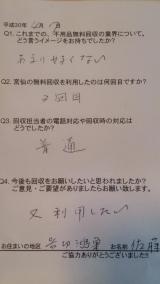 平成30年 12月 7日
Q1.これまでの、不用品無料回収の業界について、
どう言うイメージをお持ちでしたか?
あまりよくない
Q2.宮仙の無料回収を利用したのは何回目ですか?
2回目
Q3.回収担当者の電話対応や回収時の対応は
どうでしたか?
普通
Q4.今後も回収をお願いしたいと思われましたか?
ご意見・ご要望がありましたらお願い致します。
又利用したい
お住まいの地区 岩切鴻巣 お名前 佐藤
ご協力ありがとうございました!!